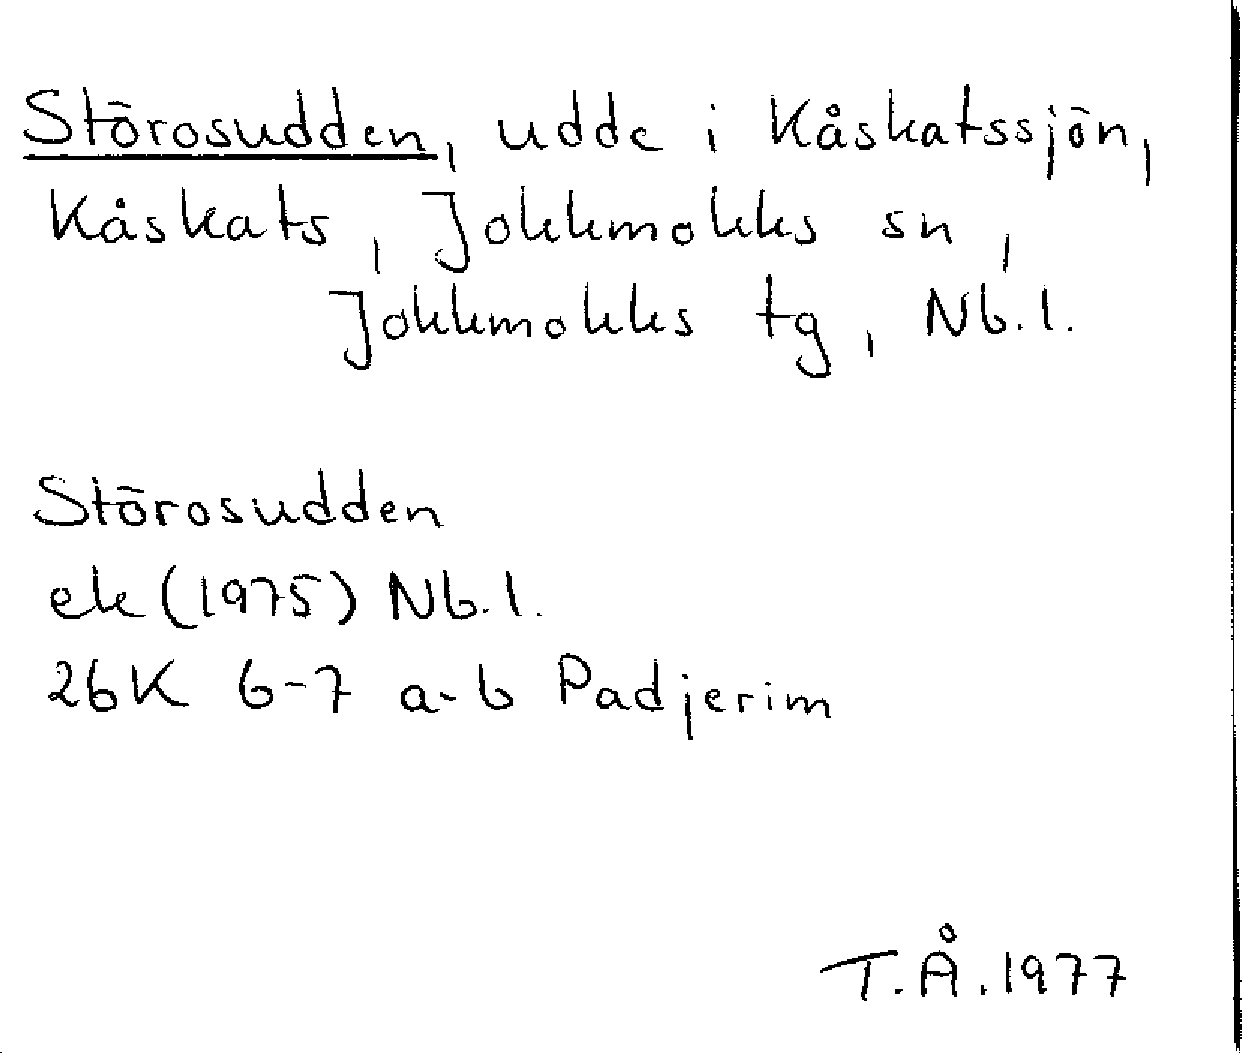 Störosudden, udde i Kåskatssjön,
Kåskats, Jokkmokks sn,
Jokkmokks tg, Nb.l.
Störosudden
ek (1975) Nb.l.
26K 6-7 a-b Padjerim
T.Å.1977